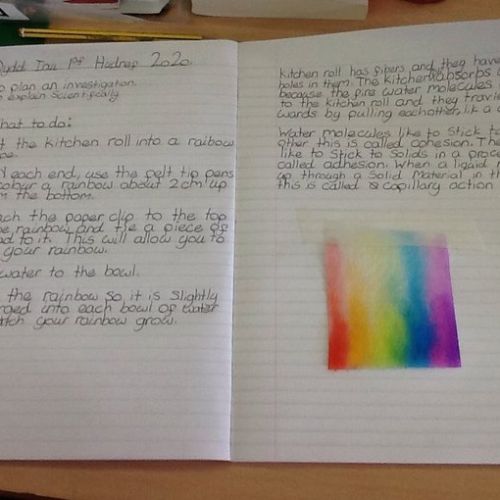 Dydd Iau 1af Hydref 2020
o plan an investigation.
o explain scientifically
hat to do:
t the kitchen roll into a raibow
pe.
each end, use the felt tip pens
colour a rainbow about 2cm up
m the bottom.
ach the paper clip to the top
e rainbow and tie a piece of
ad to it. This will allow you to
your rainbow.
water to the bowl.
the rainbow so it is slightly
rged into each bowl of water
tch your rainbow grow.
Kitchen roll has fibers and they have
holes in them. The kitchen absorbs
because the fire water molecules
to the kitchen roll and they travle
wards by pulling eachother, lik a
Water molecules like to stick t
other this is called cohesion. The
like to stick to solids in a proce
called adhesion. When a liquid
up through a solid material in th
this is called capillary action